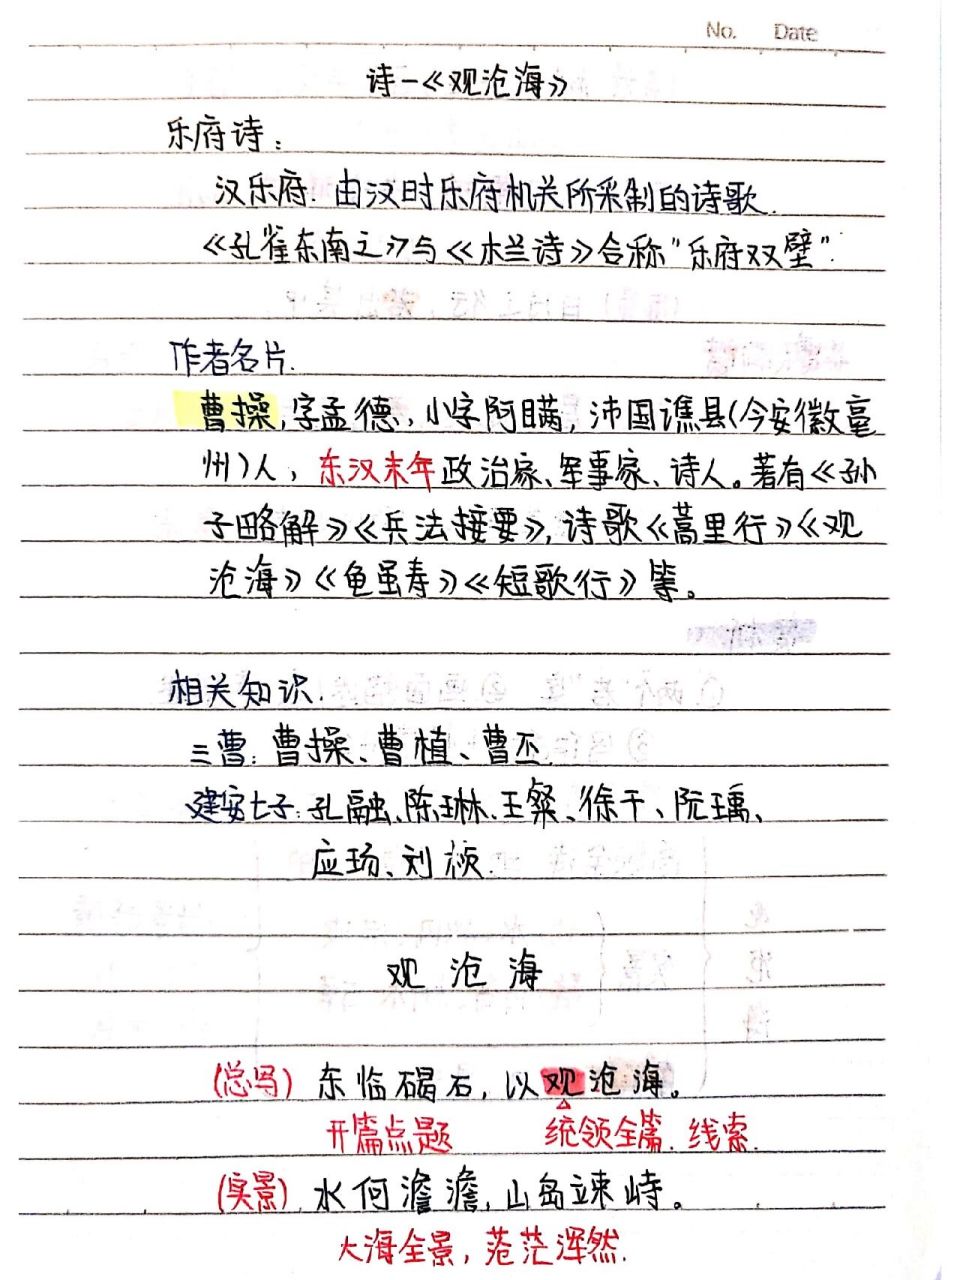 No. Date
诗一《观沧海》
乐府诗：
汉乐府：由汉时乐府机关所采制的诗歌.
《孔雀东南飞》与《木兰诗》合称"乐府双壁".
作者名片.
曹操，字孟德，小字阿瞒，沛国谯县（今安徽亳
州）人，东汉末年政治家、军事家、诗人。著有《孙
子略解》《兵法接要》，诗歌《蒿里行》《观
沧海》《龟虽寿》《短歌行》等。
相关知识.
三曹：曹操、曹植、曹丕.
建安七子：孔融、陈琳、王粲、徐干、阮瑀、
应玚、刘桢.
观沧海
（总写）东临碣石，以观沧海。
开篇点题 统领全篇.线索.
（实景）水何澹澹，山岛竦峙。
大海全景，苍茫浑然.